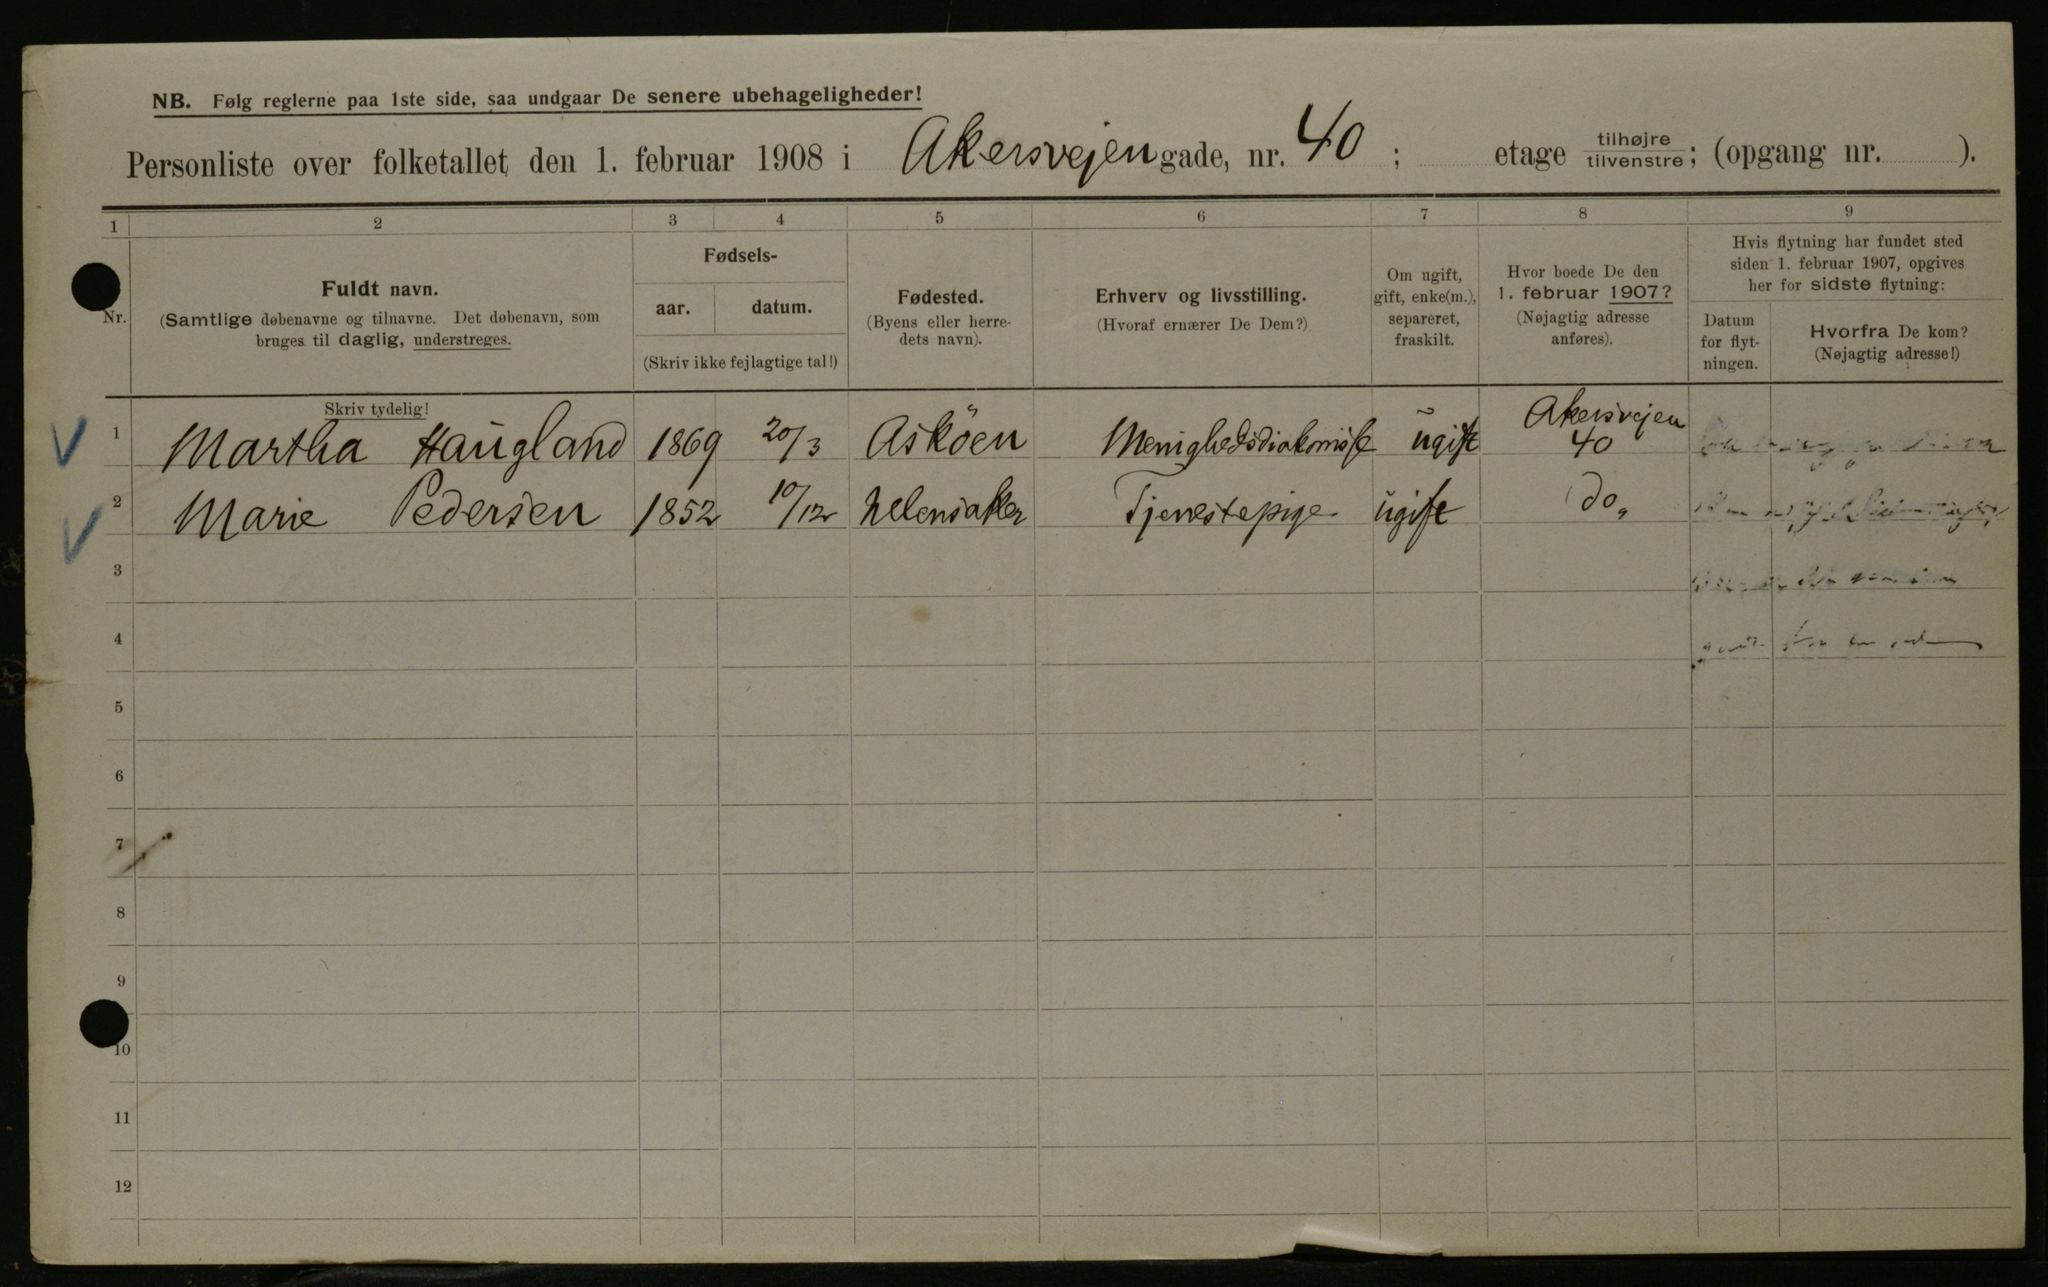 NB. Følg reglerne paa 1ste side, saa undgaar De senere ubehageligheder!
Personliste over folketallet den 1. februar 1908 i Akersvejen gade, nr. 40 ; etage tilhøjre/tilvenstre; (opgang nr. ).
1 2 3 4 5 6 7 8 9
Nr.
Fuldt navn.
(Samtlige døbenavne og tilnavne. Det døbenavn, som
bruges til daglig, understreges.
Skriv tydelig!
Fødsels-
aar. datum.
(Skriv ikke fejlagtige tal!)
Fødested.
(Byens eller herre-
dets navn).
Erhverv og livsstilling.
(Hvoraf ernærer De Dem?)
Om ugift,
gift, enke(m.),
separeret,
fraskilt.
Hvor boede De den
1. februar 1907?
(Nøjagtig adresse
anføres).
Hvis flytning har fundet sted
siden 1. februar 1907, opgives
her for sidste flytning:
Datum
for flyt-
ningen.
Hvorfra De kom?
(Nøjagtig adresse!)
1 Martha Haugland 1869 20/3 Asköen Menighedsdiakonisse ugift Akersvejen 40
2 Marie Pedersen 1852 10/12 Tjenestepige ugift do
3
4
5
6
7
8
9
10
11
12